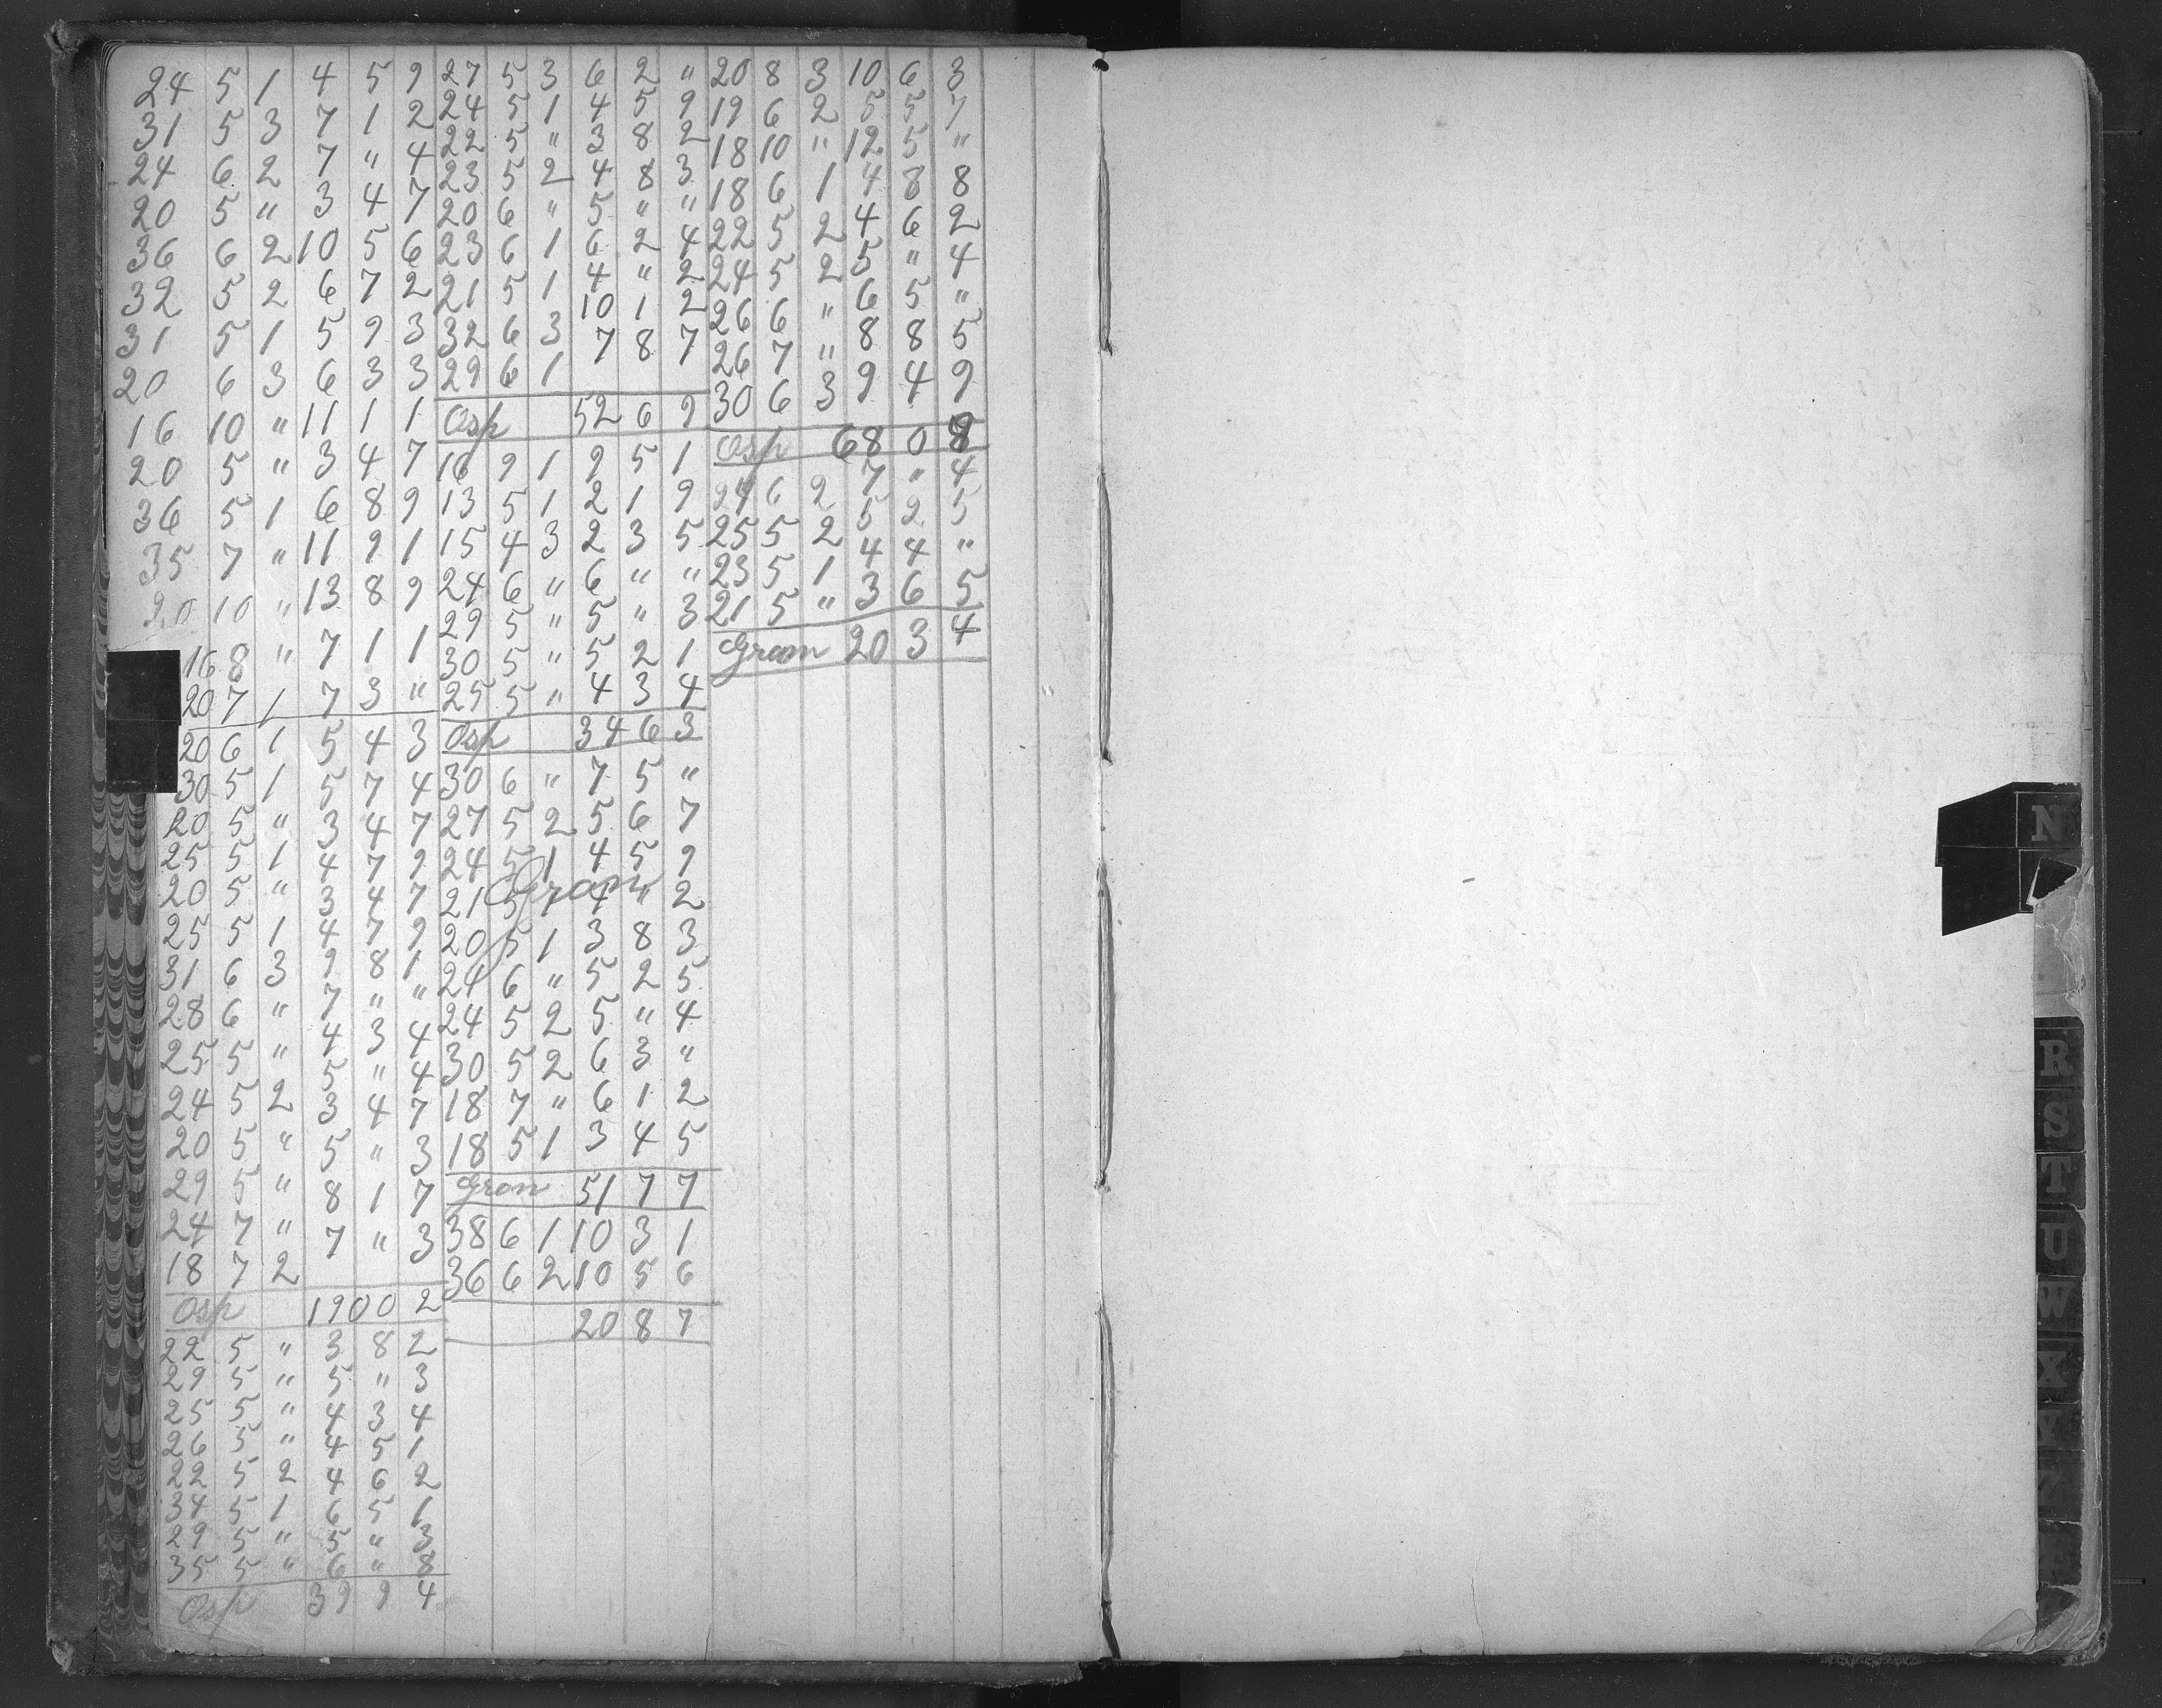 24 5 1 4 5 9
31 5 3 7 1 2
24 6 2 7 " 4
20 5 " 3 4 7
36 6 2 10 5 6
32 5 2 6 7 2
31 5 1 5 9 3
20 6 3 6 3 3
16 10 " 11 1 1
20 5 " 3 4 7
36 5 1 6 8 9
35 7 " 11 9 1
20 10 " 13 8 9
16 8 " 7 1 1
20 7 1 7 3 "
20 6 1 5 4 3
30 5 1 5 7 4
20 5 " 3 4 7
25 5 1 4 7 9
20 5 " 3 4 7
25 5 1 4 7 9
31 6 3 9 8 1
28 6 " 7 " "
25 5 " 4 3 4
24 5 2 5 " 4
20 5 " 3 4 7
29 5 " 5 " 3
24 7 " 8 1 7
18 7 2 7 " 3
Osp 190 0 2
22 5 " 3 8 2
29 5 " 5 " 3
25 5 " 4 3 4
26 5 " 4 5 1
22 5 2 4 6 2
34 5 1 6 5 1
29 5 " 5 " 3
35 5 " 6 " 8
Osp 39 9 4
27 5 3 6 2 "
24 5 1 4 5 9
22 5 " 3 8 2
23 5 2 4 8 3
20 6 " 5 " "
23 6 1 6 2 4
21 5 1 4 " 2
32 6 3 10 1 2
29 6 1 7 8 7
Osp 52 6 9
16 9 1 9 5 1
13 5 1 2 1 9
15 4 3 2 3 5
24 6 " 6 " "
29 5 " 5 " 3
30 5 " 5 2 1
25 5 " 4 3 4
Osp 34 6 3
30 6 " 7 5 "
27 5 2 5 6 7
24 5 1 4 5 9
Gran
21 5 1 4 " 2
20 5 1 3 8 3
24 6 " 5 2 5
24 5 2 5 " 4
30 5 2 6 3 "
18 7 " 6 1 2
18 5 1 3 4 5
Gran 51 7 7
38 6 1 10 3 1
36 6 2 10 5 6
20 8 7
20 8 3 10 6 3
19 6 2 5 5 7
18 10 " 12 5 "
18 6 1 4 8 8
22 5 2 4 6 2
24 5 2 5 " 4
26 6 " 6 5 "
26 7 " 8 8 5
30 6 3 9 4 9
Osp 68 0 8
24 6 2 7 " 4
25 5 2 5 2 5
23 5 1 4 4 "
21 5 " 3 6 5
Gran 20 3 4
N
R
S
T
U
W
X
Y